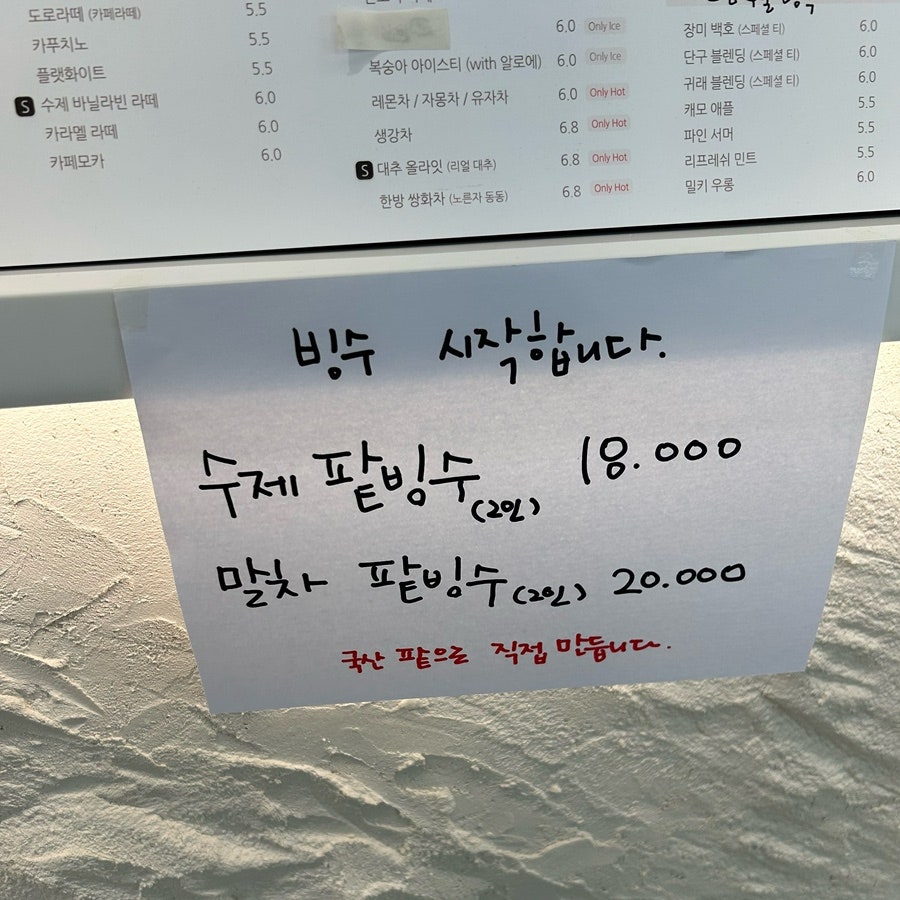 도로라떼 (카페라떼) 5.5
카푸치노 5.5
플랫화이트 5.5
S 수제 바닐라빈 라떼 6.0
카라멜 라떼 6.0
카페모카 6.0
6.0 Only Ice
복숭아 아이스티 (with 알로에) 6.0 Only Ice
레몬차 / 자몽차 / 유자차 6.0 Only Hot
생강차 6.8 Only Hot
S 대추 올라잇 (리얼 대추) 6.8 Only Hot
한방 쌍화차 (노른자 동동) 6.8 Only Hot
장미 백호 (스페셜 티) 6.0
단구 블렌딩 (스페셜 티) 6.0
귀래 블렌딩 (스페셜 티) 6.0
캐모 애플 5.5
파인 서머 5.5
리프레쉬 민트 5.5
밀키 우롱 6.0
빙수 시작합니다.
수제 팥빙수 (2인) 18.000
말차 팥빙수 (2인) 20.000
국산 팥으로 직접 만듭니다.